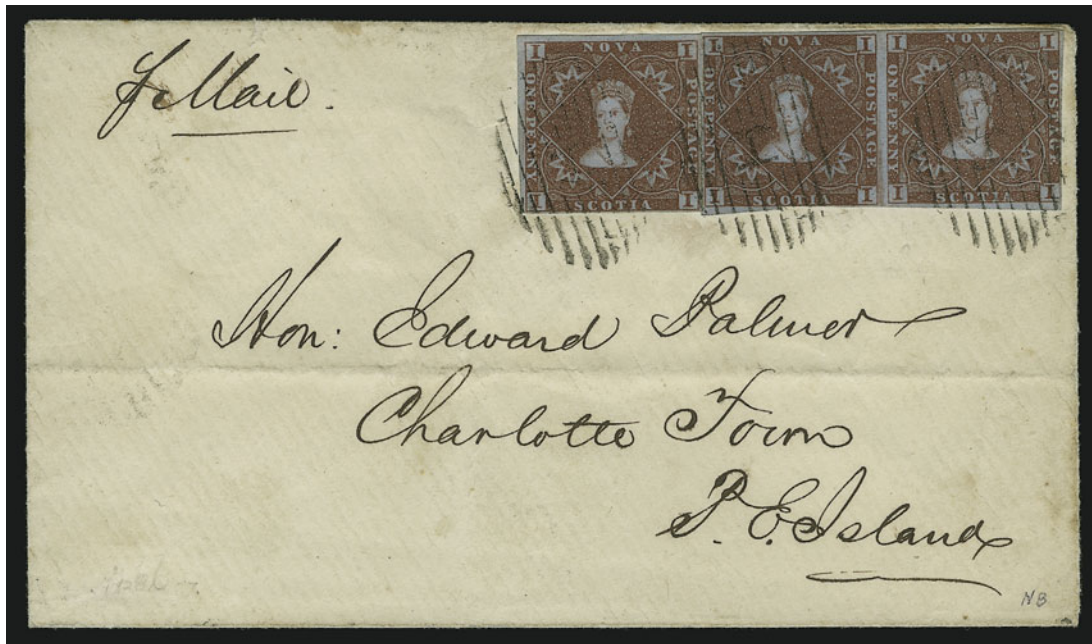 Mail.
I NOVA I
ONE PENNY
POSTAGE
I SCOTIA I
I NOVA I
ONE PENNY
POSTAGE
I SCOTIA I
I NOVA I
ONE PENNY
POSTAGE
I SCOTIA I
Hon: Edward Palmer
Charlotte Town
P. E. Island
NB